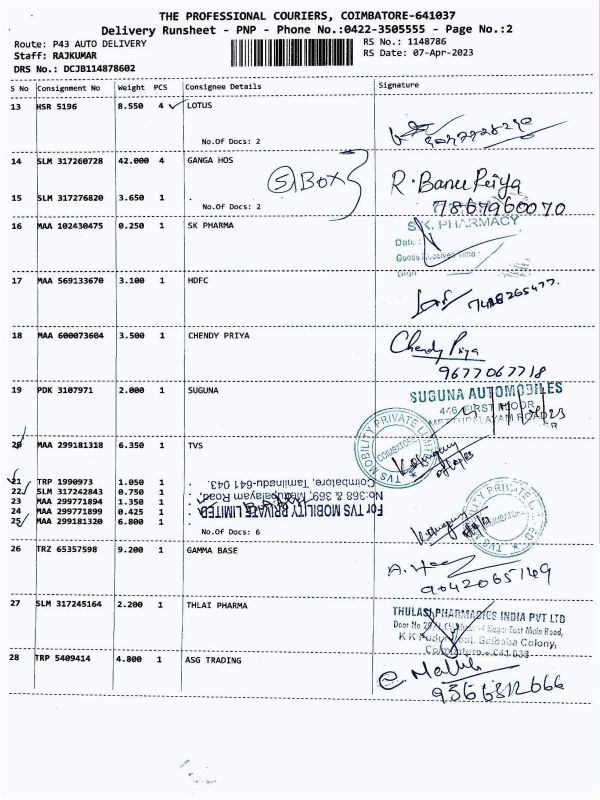 THE PROFESSIONAL COURIERS, COIMBATORE-641037
Delivery Runsheet - PNP - Phone No.:0422-3505555 - Page No.:2
Route: P43 AUTO DELIVERY RS No.: 1148786
Staff: RAJKUMAR RS Date: 07-Apr-2023
DRS No.: DCJB114878602
S No Consignment No Weight PCS Consignee Details Signature
13 HSR 5196 8.550 4 LOTUS
No.Of Docs: 2
14 SLM 317260728 42.000 4 GANGA HOS
5 BOX R. Banu Priya
15 SLM 317276820 3.650 1 .
No.Of Docs: 2 7867960070
16 MAA 102430475 0.250 1 SK PHARMA
S.K. PHARMACY
Date :
Goods Received Time :
Sign
17 MAA 569133670 3.100 1 HDFC
7418265477.
18 MAA 600073604 3.500 1 CHENDY PRIYA
Chendy Priya
9677067718
19 PDK 3107971 2.000 1 SUGUNA
SUGUNA AUTOMOBILES
446, FIRST MOOR
METTUPALAYAM ROAD
20 MAA 299181318 6.350 1 TVS
TVS MOBILITY PRIVATE LIMITED
COIMBATORE
21 TRP 1990973 1.050 1 .
22 SLM 317242843 0.750 1 .
23 MAA 299771894 1.350 1 .
24 MAA 299771899 0.425 1 .
25 MAA 299181320 6.800 1 .
For TVS MOBILITY PRIVATE LIMITED
No:368 & 369, Mettupalayam Road,
Coimbatore, Tamilnadu-641 043.
No.Of Docs: 6
26 TRZ 65357598 9.200 1 GAMMA BASE
9042065149
27 SLM 317245164 2.200 1 THLAI PHARMA
THULASI PHARMACIES INDIA PVT LTD
Door No
Nagar East Main Road,
K K Pudur Post, Saibaba Colony,
Coimbatore - 641 038
28 TRP 5409414 4.800 1 ASG TRADING
9366312666